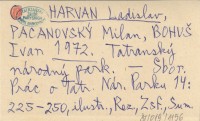 HARVAN Ladislav,
PACANOVSKÝ Milan, BOHUŠ
Ivan 1972. Tatranský
národný park. — Sbor.
Prác o Tatr. Nár. Parku 14:
225-250, ilustr., Rez., Zsf., Sum.